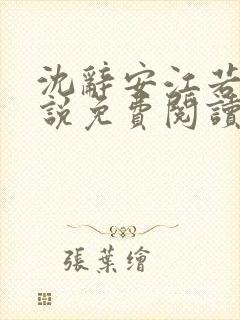 沈辭安江若
說免費閱讀
張葉繪